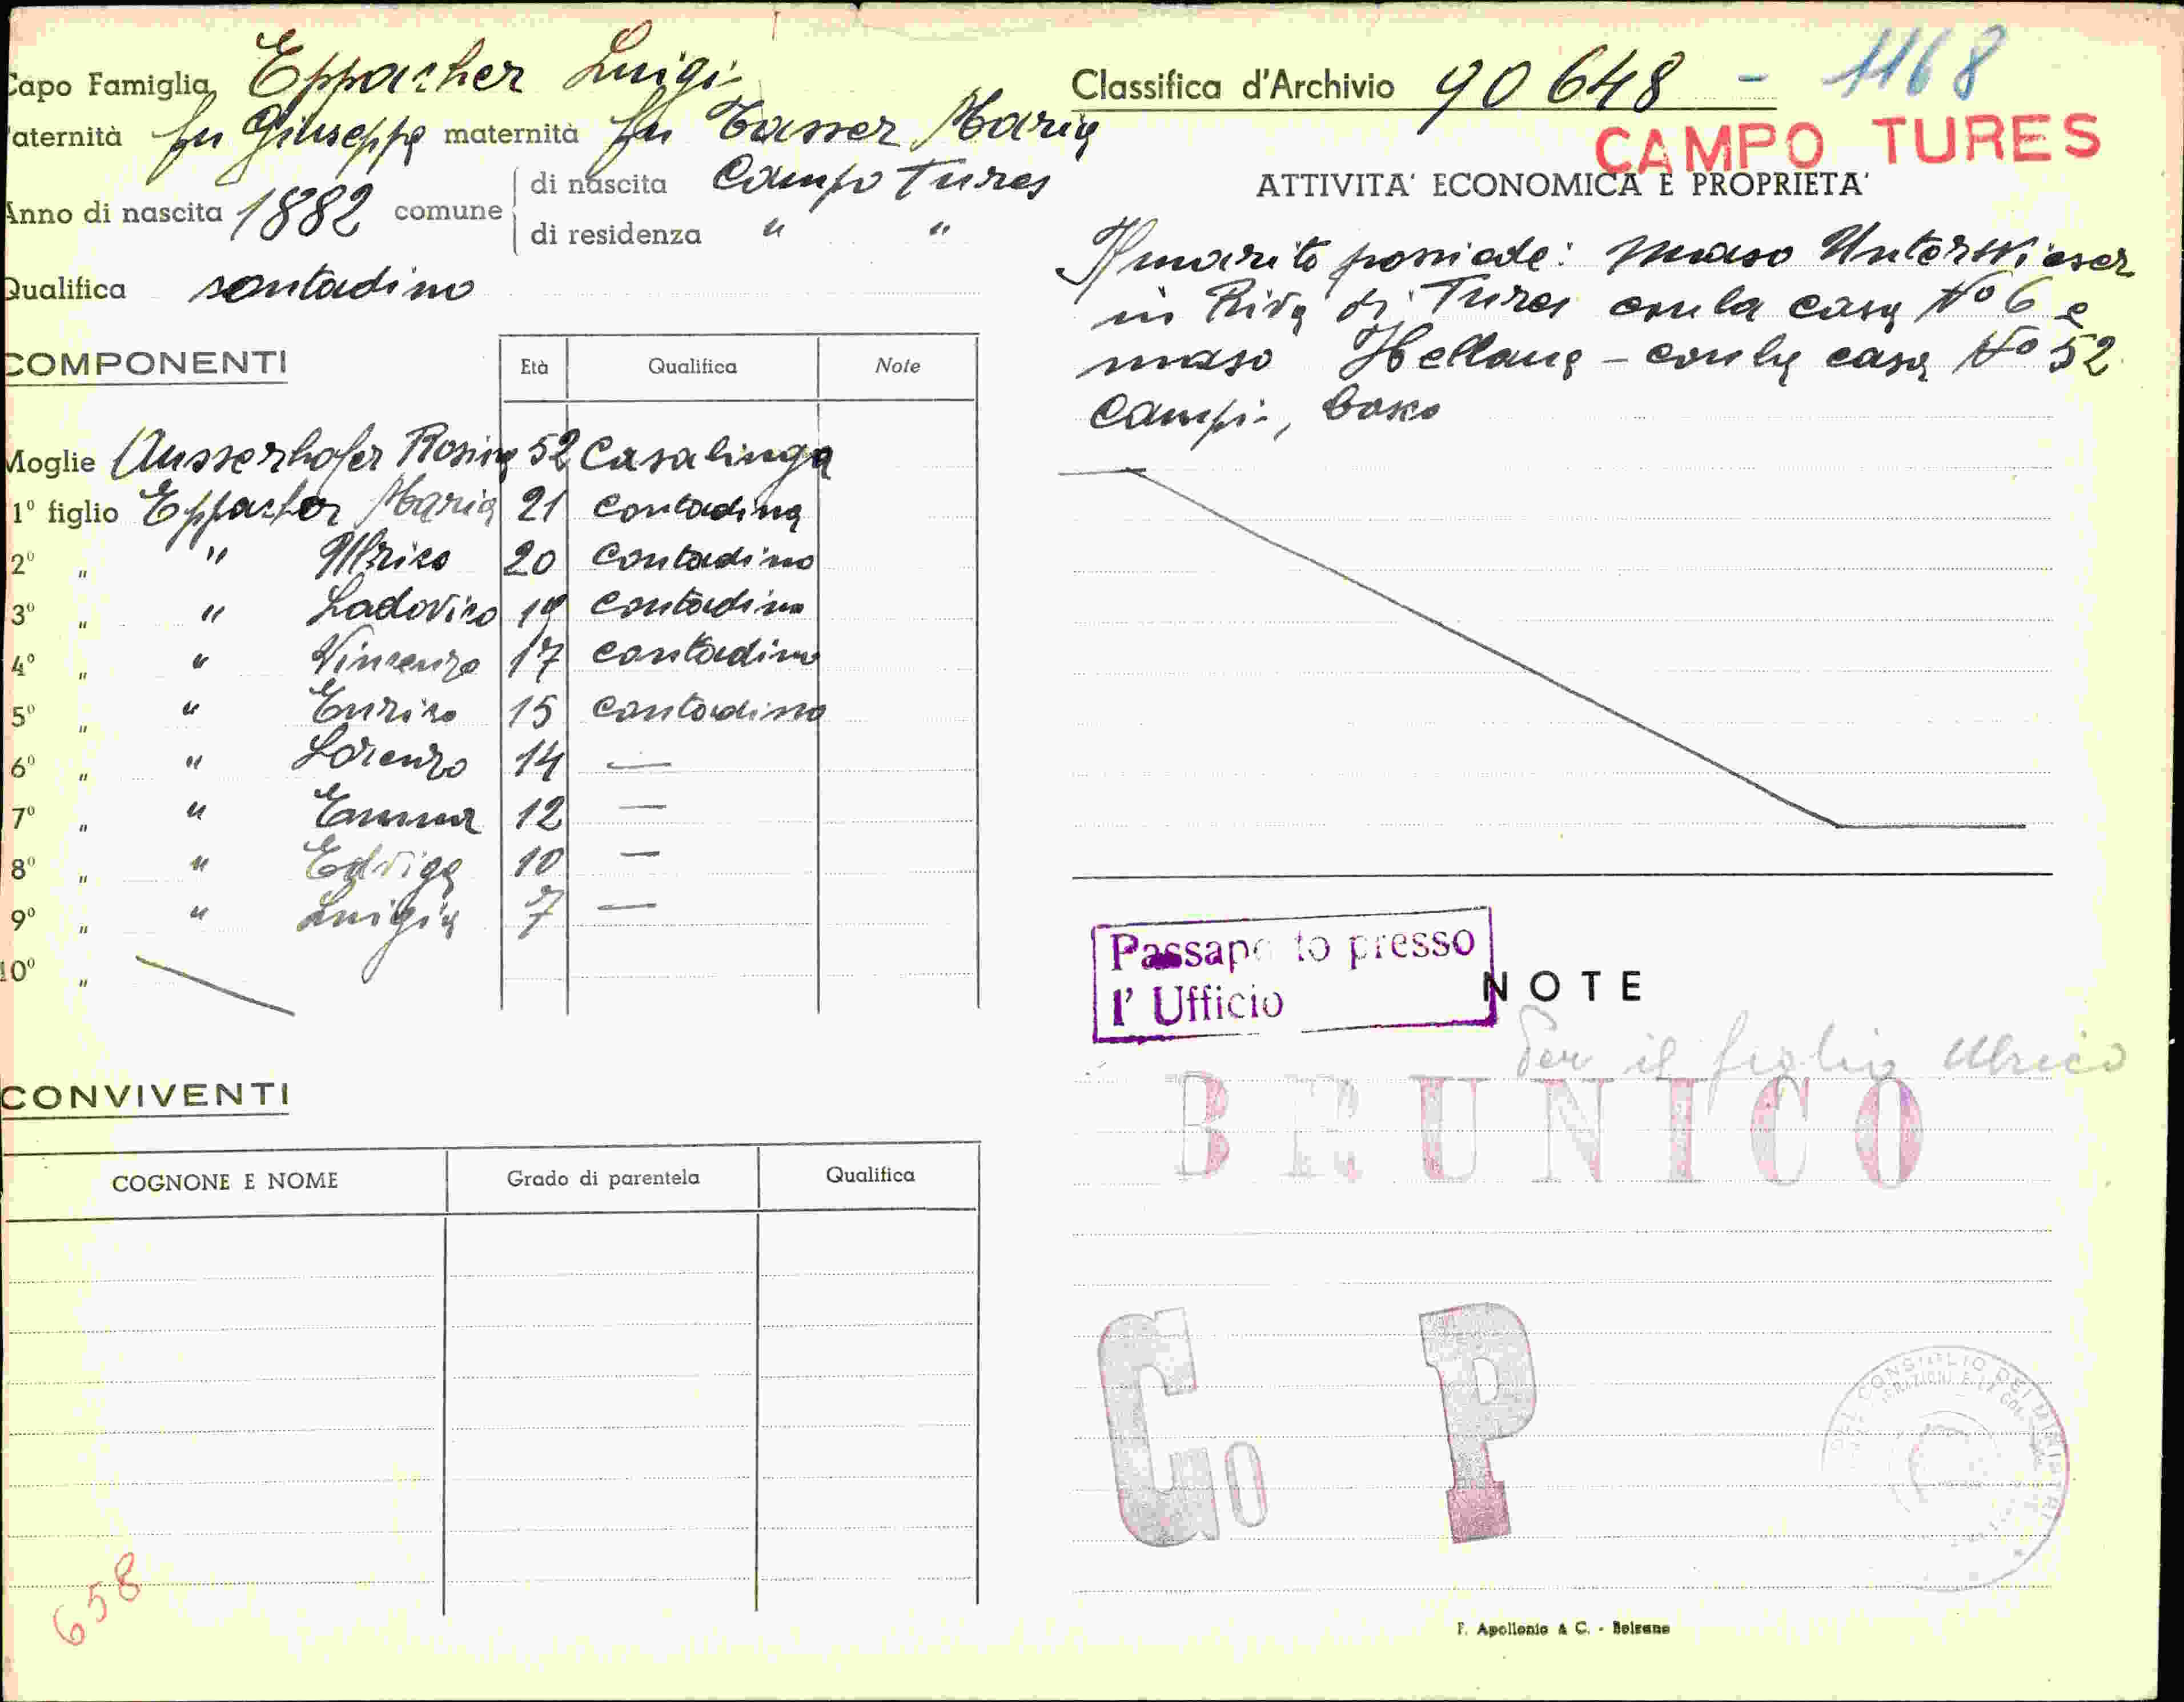 Capo Famiglia Eppacher Luigi
Paternità fu Giuseppe maternità fu Tasser Maria
Anno di nascita 1882 comune di nascita Campo Tures
di residenza " "
Qualifica contadino
COMPONENTI Età Qualifica Note
Moglie Ausserhofer Rosina 52 Casalinga
1° figlio Eppacher Maria 21 contadina
2° " " Ulrico 20 contadino
3° " " Lodovico 19 contadino
4° " " Vincenzo 17 contadino
5° " " Enrico 15 contadino
6° " " Lorenzo 14 —
7° " " Emma 12 —
8° " " Edvige 10 —
9° " " Luigia 7 —
10° "
CONVIVENTI
COGNONE E NOME Grado di parentela Qualifica
658
Classifica d'Archivio 90648 - 1168
CAMPO TURES
ATTIVITA' ECONOMICA E PROPRIETA'
Il marito possiede: maso Unterwieser
in Riva di Tures con la casa No 6 e
maso - con la casa No 52
campi, bosco
Passaporto presso
l' Ufficio
NOTE
Per il figlio Ulrico
BRUNICO
Co P
DEL CONSIGLIO DEI MINISTRI
F. Apollonio & C. - Bolzano